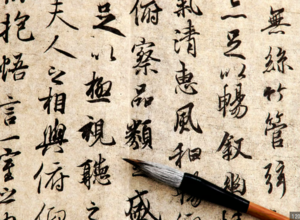 無絲竹管弦
亦足以暢叙幽
氣清惠風和暢
俯察品類之盛
足以極視聽之
夫人之相與俯仰
抱悟言一室之